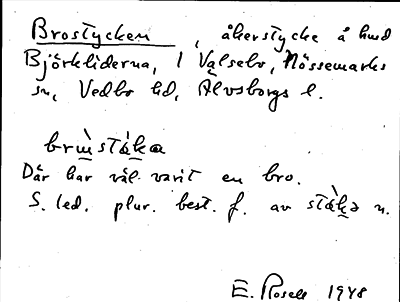 Brostycken, åkerstycke å hmd
Björkliderna, 1 Valsebo, Nössemarks
sn, Vedbo hd, Älvsborgs l.
brùstáka
Där har väl varit en bro.
S. led. plur. best. f. av stàkə n.
E. Rosell 1948